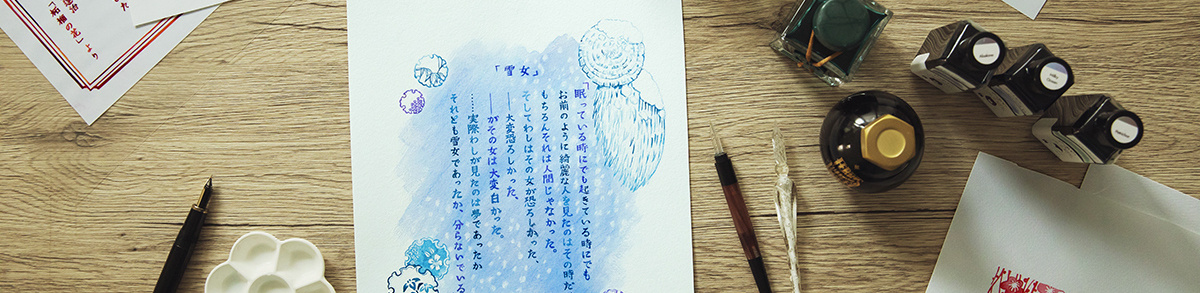 「雪女」
「眠っている時にでも起きている時にでも
お前のように綺麗な人を見たのはその時だ
もちろんそれは人間じゃなかった。
そしてわしはその女が恐ろしかった、
――大変恐ろしかった、
――がその女は大変白かった。
……実際わしが見たのは夢であったか
それとも雪女であったか、分らないでいる
の花」より